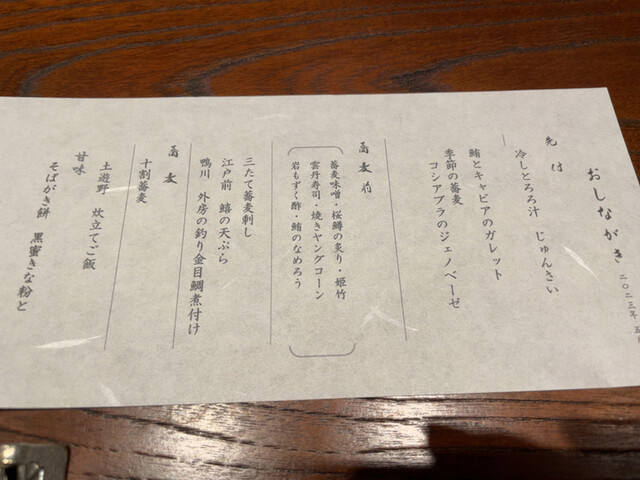 おしながき
二〇二三年 五月
先付
冷しとろろ汁 じゅんさい
鮪とキャビアのガレット
季節の蕎麦
コシアブラのジェノベーゼ
蕎麦前
蕎麦味噌・桜鱒の炙り・姫竹
雲丹寿司・焼きヤングコーン
岩もずく酢・鮪のなめろう
三たて蕎麦刺し
江戸前 鱚の天ぷら
鴨川 外房の釣り金目鯛煮付け
蕎麦
十割蕎麦
土遊野 炊立てご飯
甘味
そばがき餅 黒蜜きな粉と